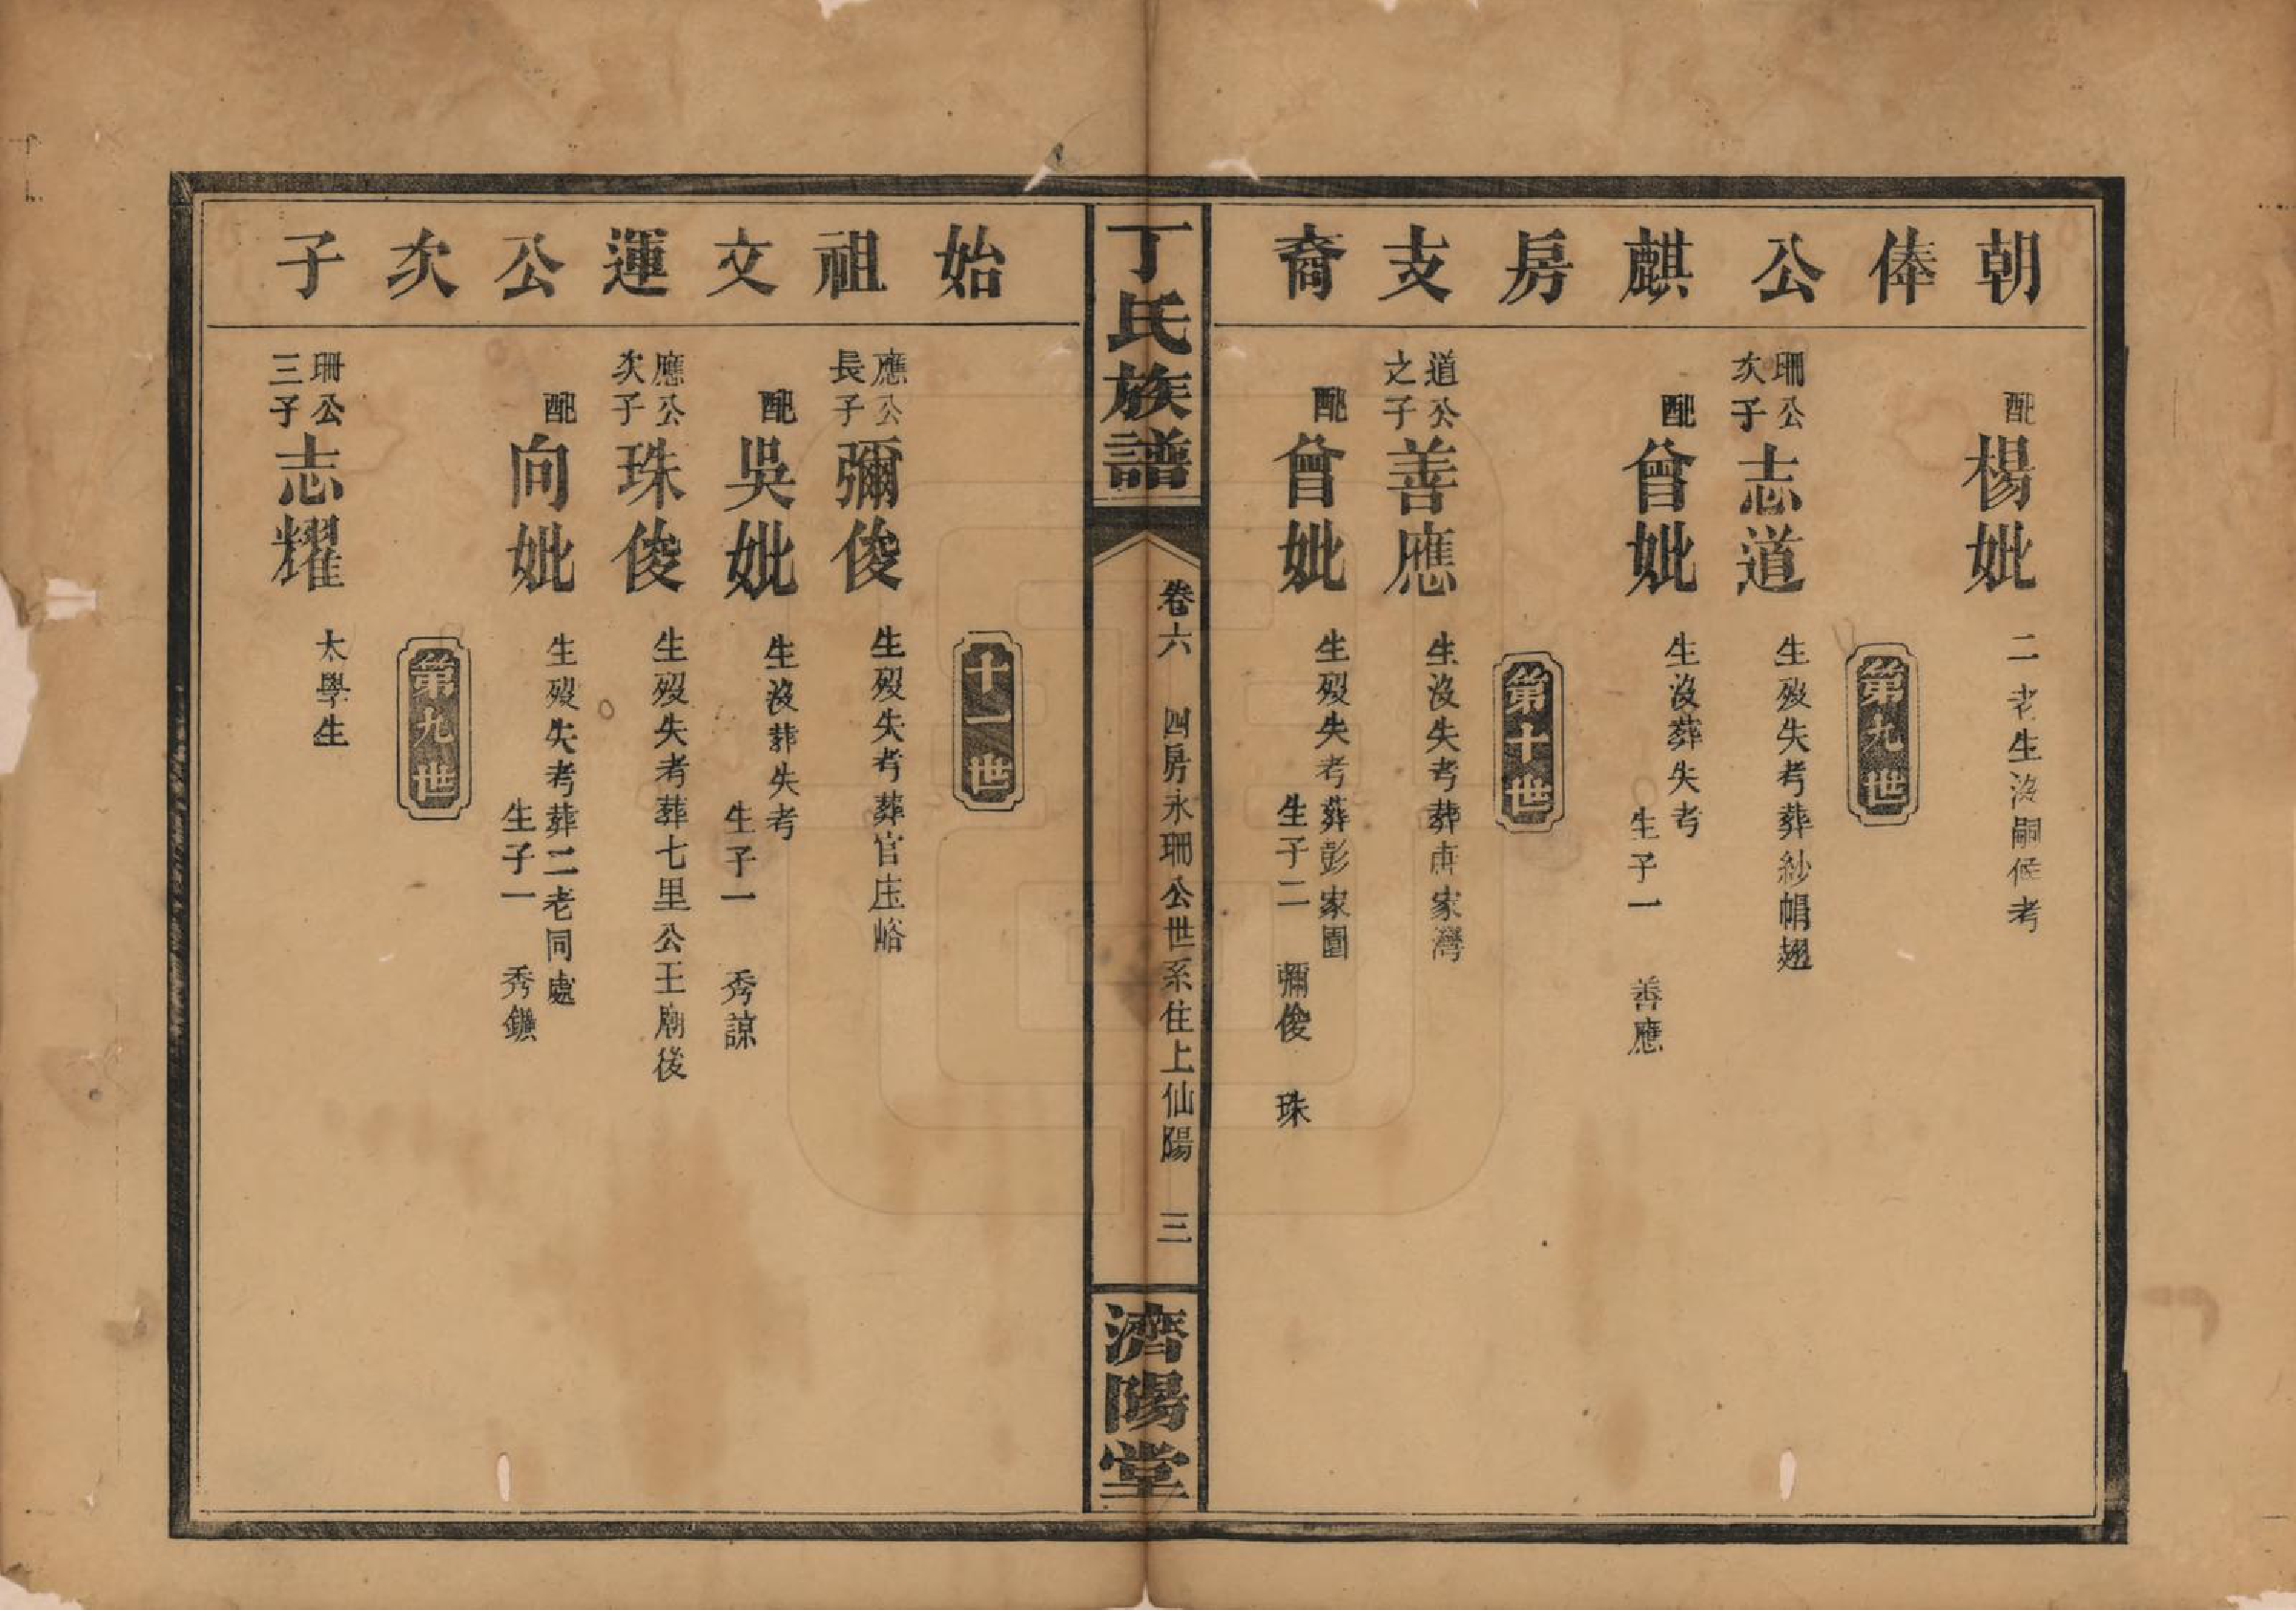 朝俸公麒房支裔
配楊妣
二老生沒嗣俟考
第九世
珊公次子志道
生歿失考葬紗帽翅
配曾妣
生沒葬失考
生子一 善應
第十世
道公之子善應
生沒失考葬 家灣
配曾妣
生歿失考葬彭家園
生子二 彌俊 珠
丁氏族譜
卷六 四房永珊公世系住上仙陽 三
濟陽堂
始祖文運公次子
十一世
應公長子彌俊
生歿失考葬官庄峪
配吳妣
生沒葬失考
生子一 秀諒
應公次子珠俊
生歿失考葬七里公王廟後
配向妣
生歿失考葬二老同處
生子一 秀
第九世
珊公三子志耀
太學生